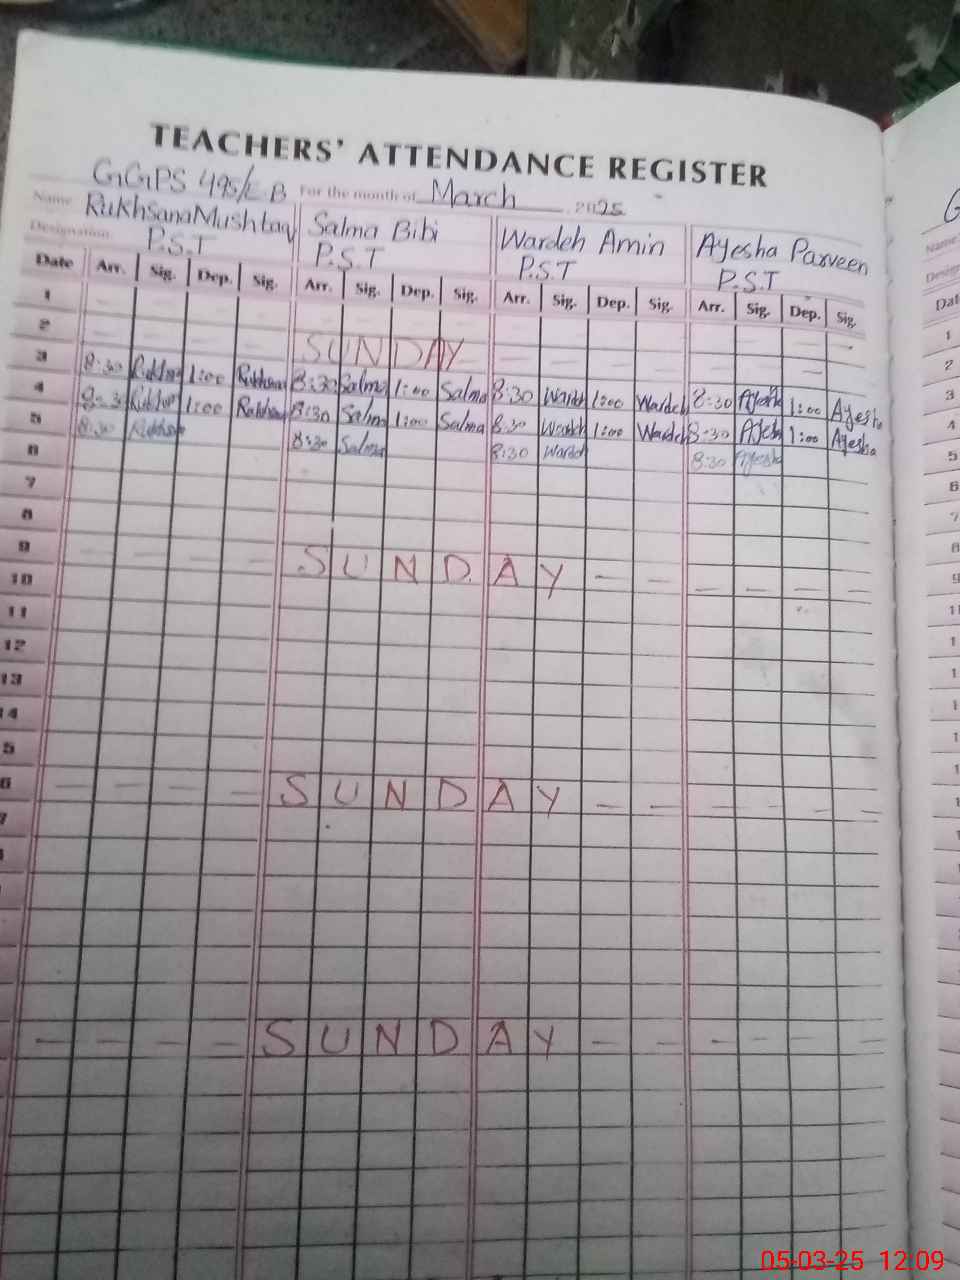 TEACHERS' ATTENDANCE REGISTER
GGPS 495/E.B For the month of March 2025
Name Rukhsana Mushtaq Salma Bibi Wardeh Amin Ayesha Parveen
Designation P.S.T P.S.T P.S.T P.S.T
Date Arr. Sig. Dep. Sig. Arr. Sig. Dep. Sig. Arr. Sig. Dep. Sig. Arr. Sig. Dep. Sig.
1
2 SUNDAY
3 8:30 1:00 8:30 Salma 1:00 Salma 8:30 Wardeh 1:00 Wardeh 8:30 Ayesha 1:00 Ayesha
4 8:30 1:00 8:30 Salma 1:00 Salma 8:30 Wardeh 1:00 Wardeh 8:30 Ayesha 1:00 Ayesha
5 8:30 8:30 Salma 8:30 Wardeh 8:30 Ayesha
6
7
8
9 SUNDAY
10
11
12
13
14
5
6 SUNDAY
7
SUNDAY
Name
Date
1
2
3
4
5
6
7
8
9
05-03-25 12:09